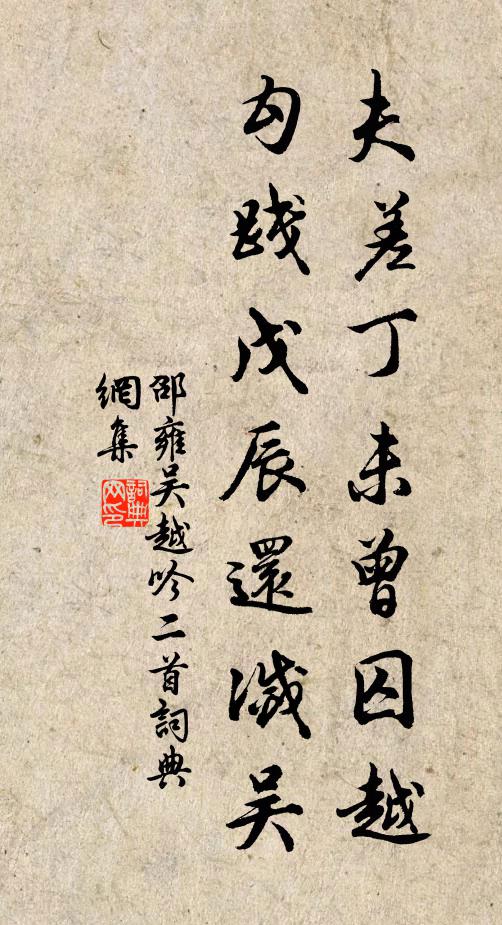 夫差丁未曾囚越
勾踐戊辰還滅吴
邵雍吴越吟二首詞典
網集
詞典
网印